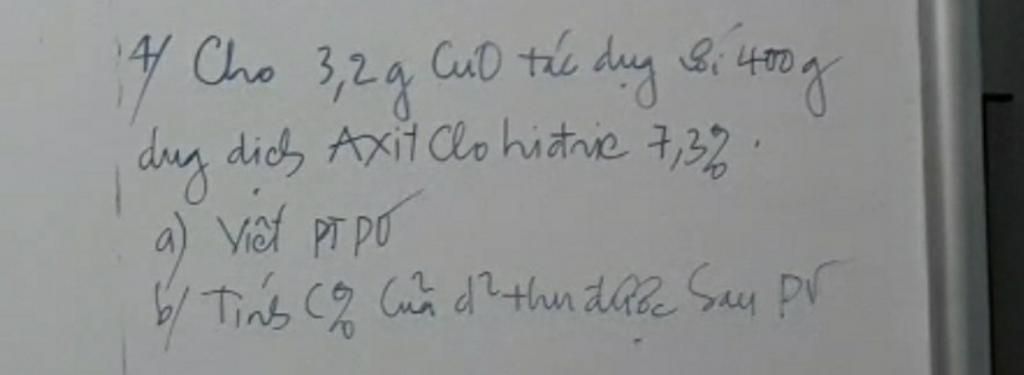 4/ Cho 3,2g CuO tác dụg với 400g
dug dịch Axit Clo hiđric 7,3%.
a) Viết PTPƯ
b/ Tính C% của d² thu được sau PƯ